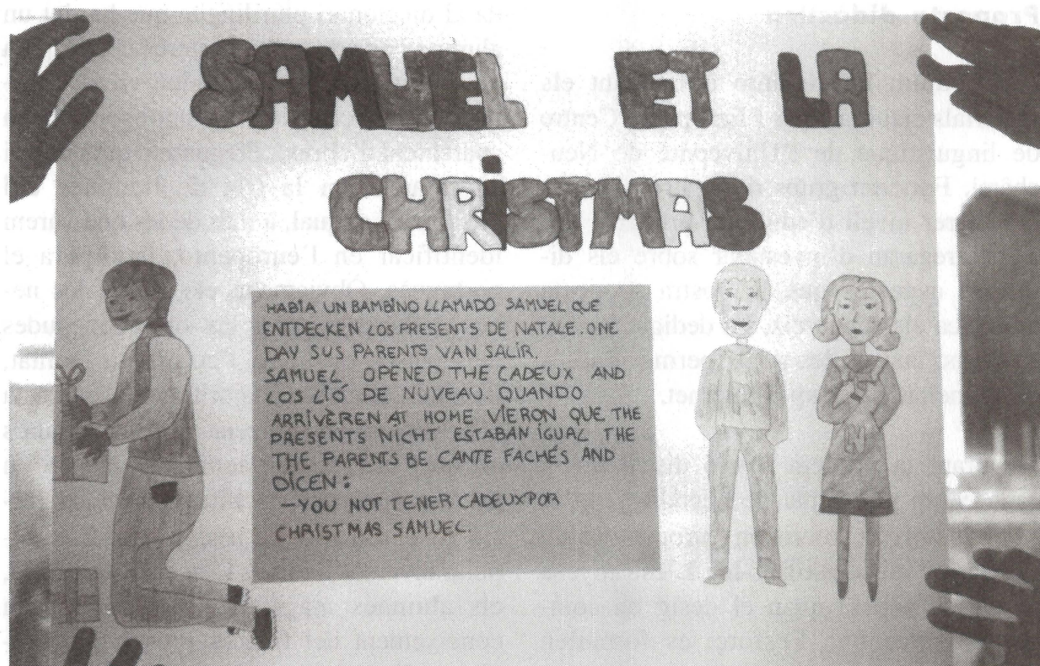 SAMUEL ET LA
CHRISTMAS
HABÍA UN BAMBINO LLAMADO SAMUEL QUE
ENTDECKEN LOS PRESENTS DE NATALE. ONE
DAY SUS PARENTS VAN SALIR.
SAMUEL OPENED THE CADEUX AND
LOS LIÓ DE NUVEAU. QUANDO
ARRIVÈREN AT HOME VIERON QUE THE
PRESENTS NICHT ESTABAN IGUAL THE
THE PARENTS BE CANTE FACHÉS AND
DICEN:
—YOU NOT TENER CADEUX POR
CHRISTMAS SAMUEL.